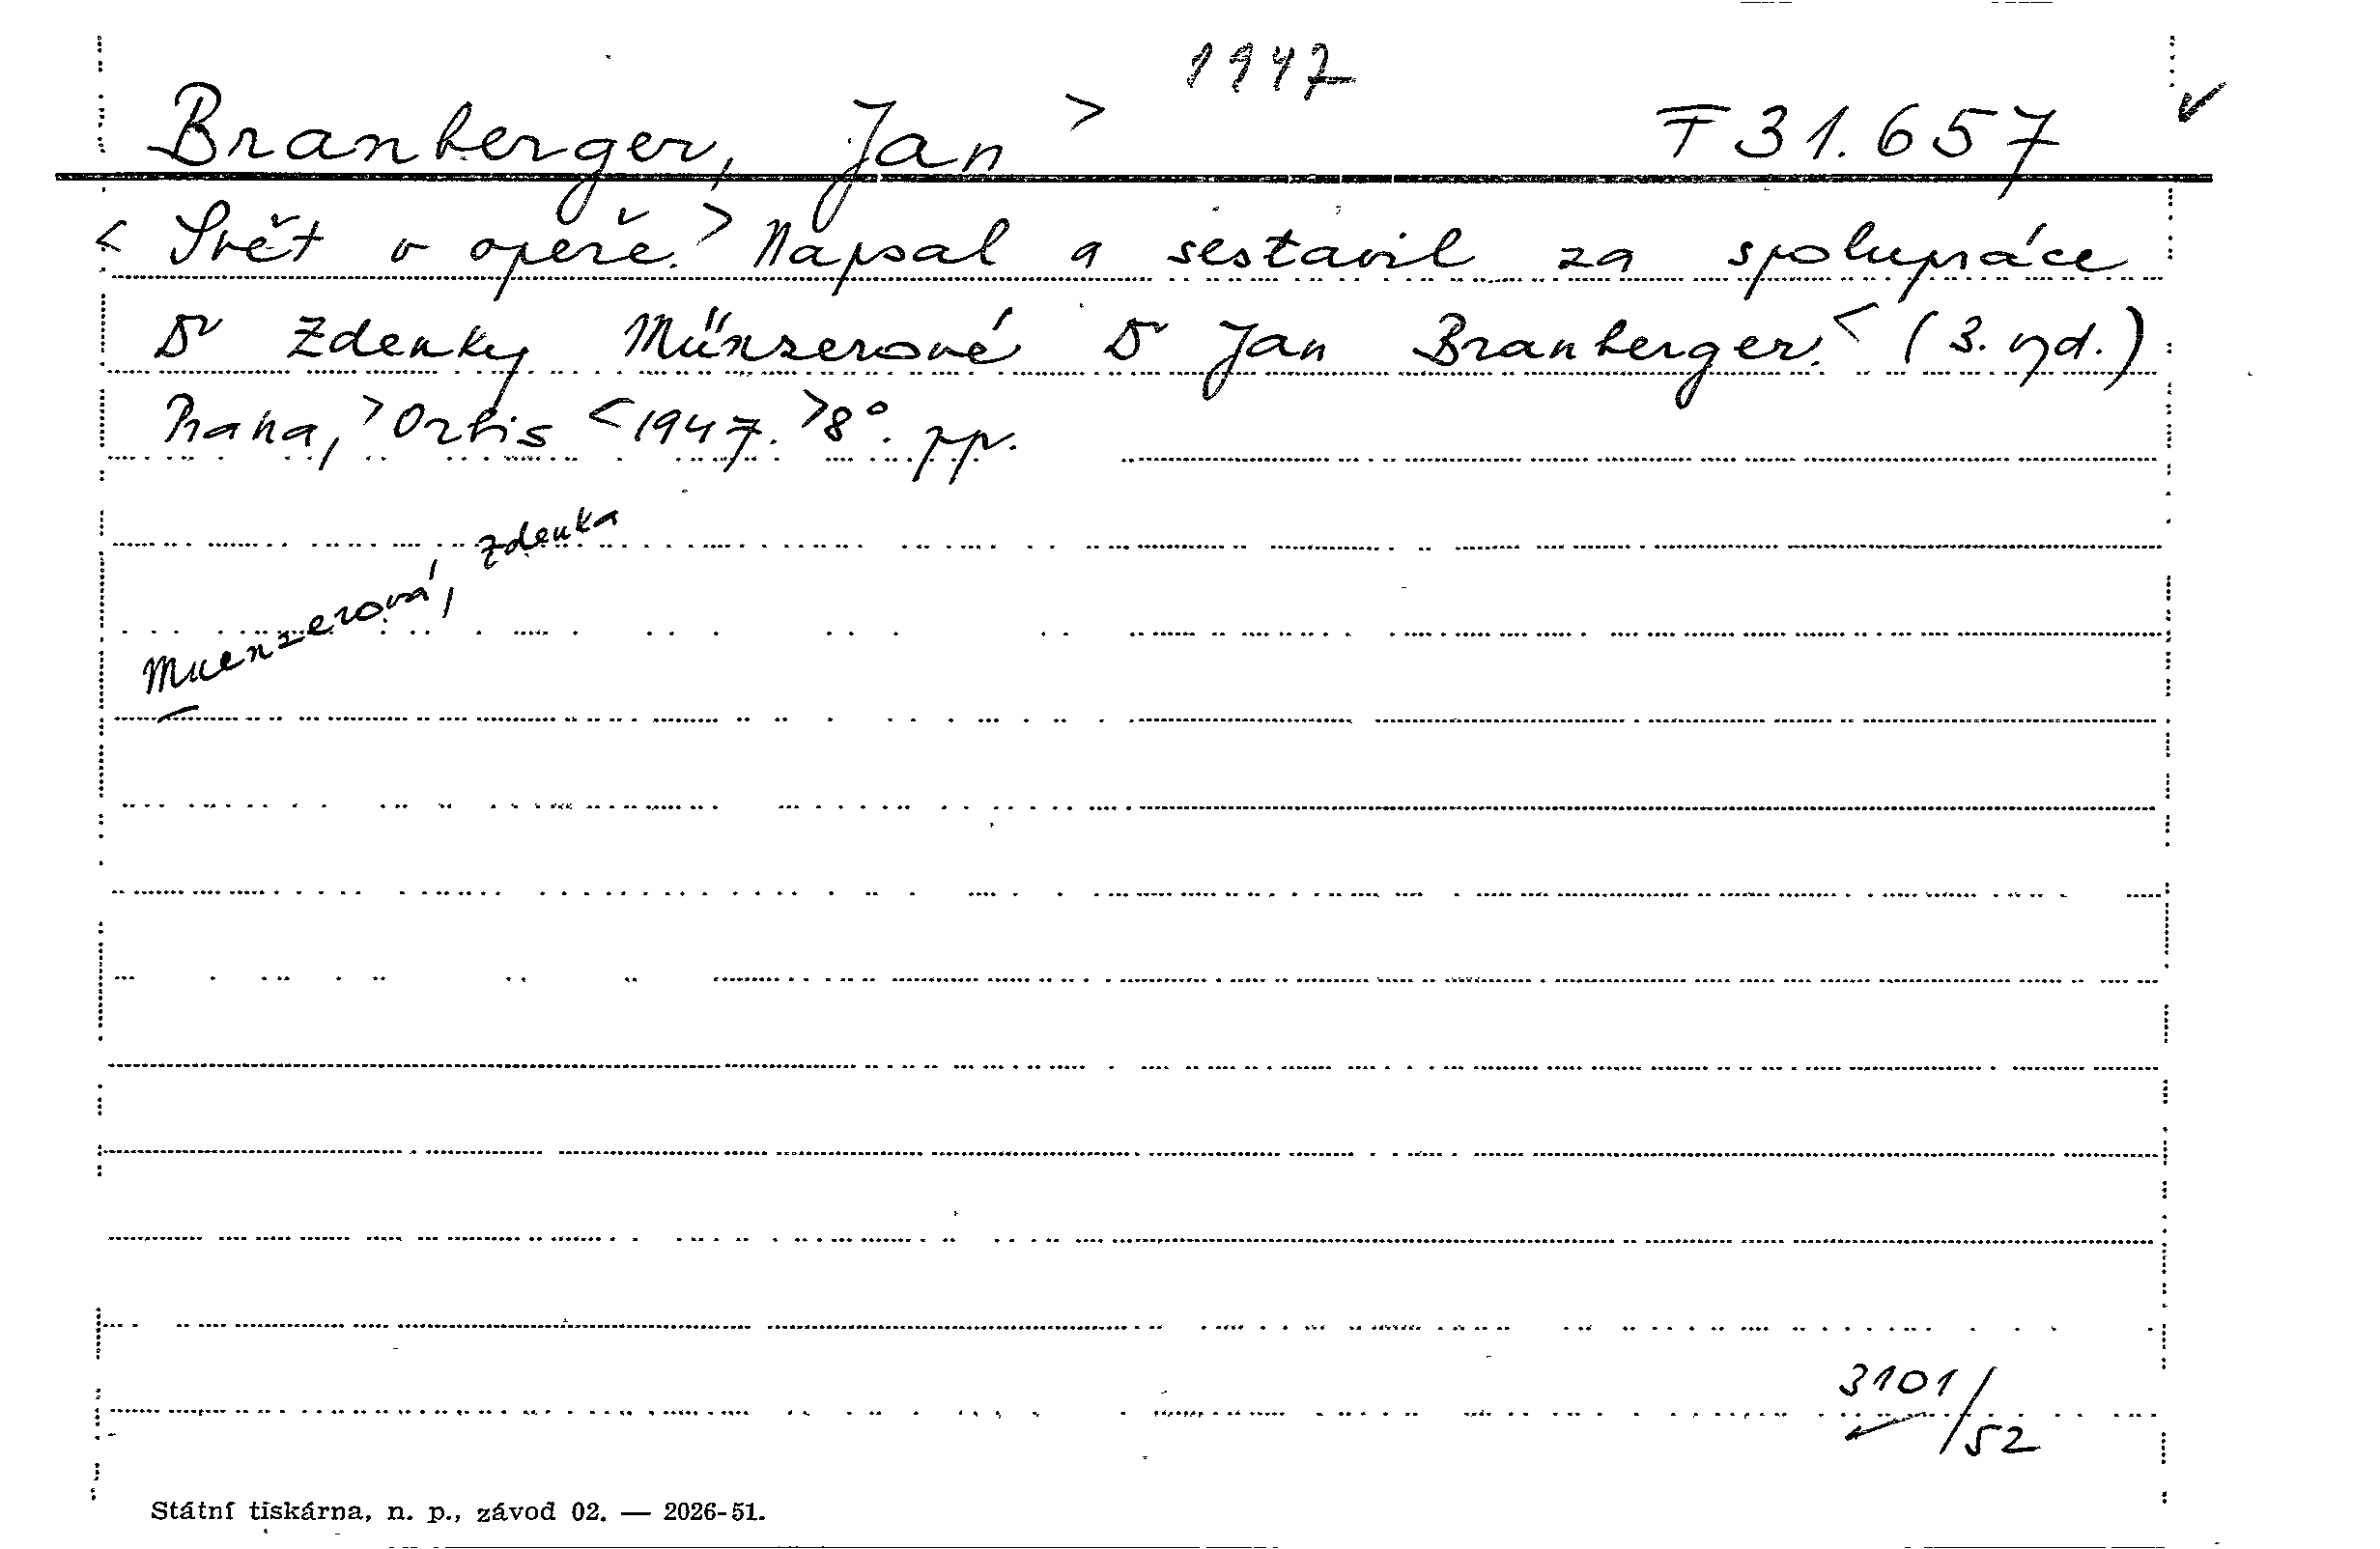 1947
Branberger, Jan > F 31.657
< Svět v opeře. > Napsal a sestavil za spolupráce
Dr Zdenky Münzerové Dr Jan Branberger. < (3. vyd.)
Praha, > Orbis < 1947. > 8°. pp.
Muenzerová, Zdenka
3101/52
Státní tiskárna, n. p., závod 02. — 2026-51.